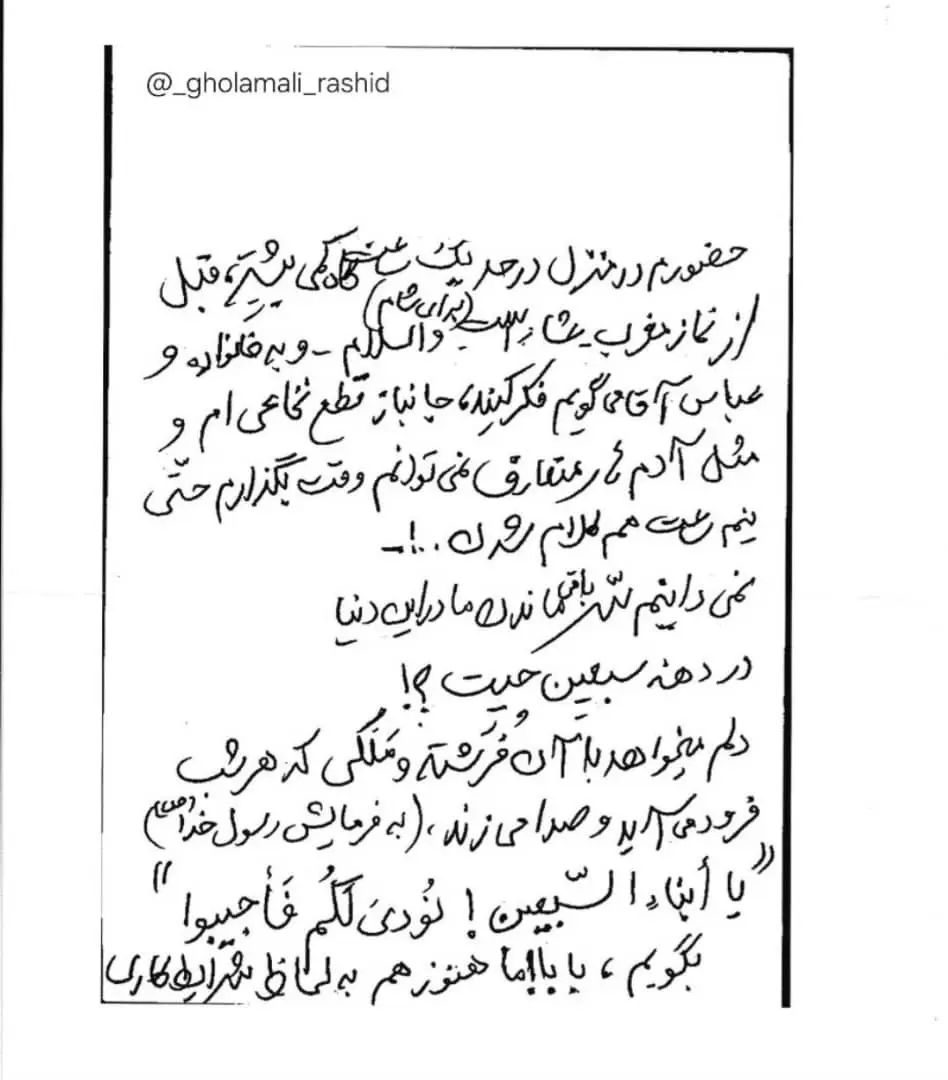 @_gholamali_rashid
حضورم در منزل در حد یک ساعت گاه کمی بیشتر، قبل
از نماز مغرب عشاء است (برای شام) والسلام - و به خانواده و
عباس آقا می گویم فکر کنید، جانباز قطع نخاعی ام و
مثل آدم های متعارف نمی توانم وقت بگذارم حتّی
نیم ساعت هم کلام شدن ..!-
نمی دانیم سّر باقیماندن ما در این دنیا
در دهنه سبعین چیست ؟!
دلم میخواهد با آن فرشته و مَلَکی که هر شب
فرود می آید و صدا می زند، (به فرمایش رسول خدا (ص))
"یا أبناءِ السّبعین! نُودیَ لَکُم فَأجیبوا"
بگویم، بابا ما هنوز هم به لحاظ شرایط کاری